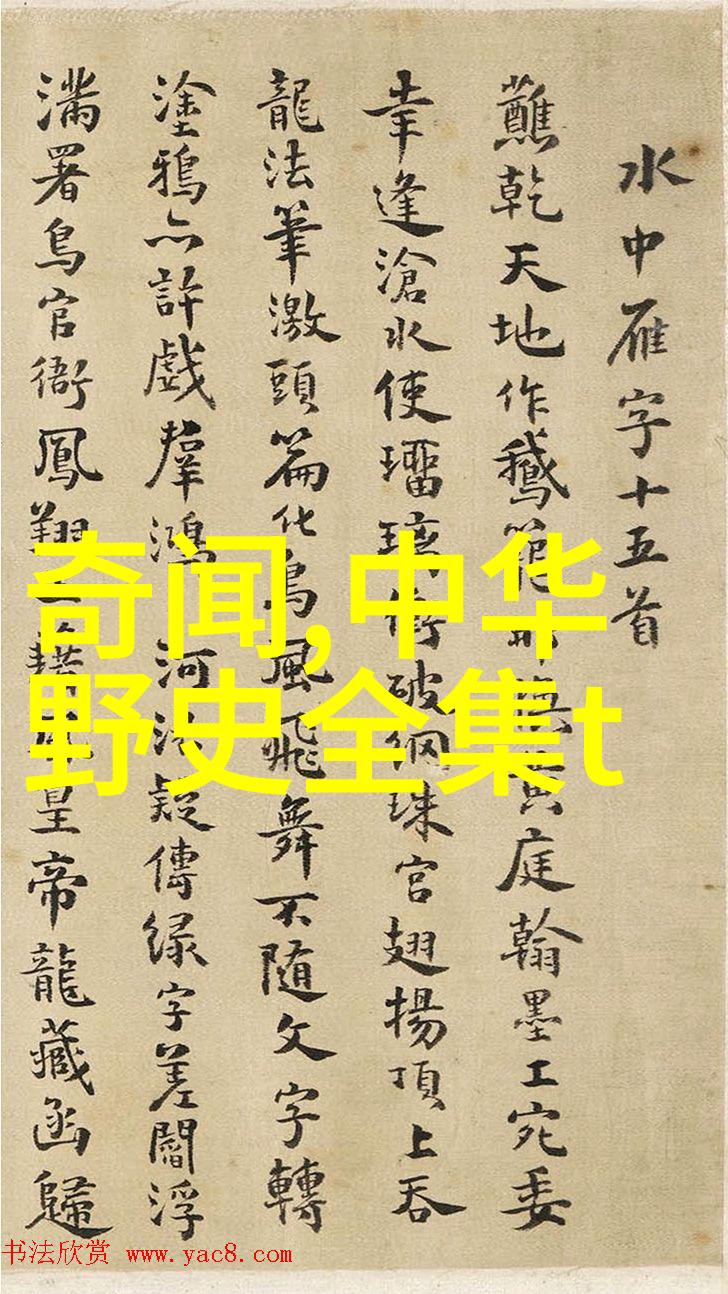 水中雁字十五首
蘸乾天地作鵝庭翰墨工宛委
幸逢滄水使破網珠宮翅揚頂上吞
龍法筆激頭篇化鳥風飛舞不隨文字轉
塗鴉亦許戲羣鴻河疑傳緑字差閻浮
滿署鳥官衙鳳翔皇帝龍藏函歸
奇闻,中华
野史全集t
书法欣赏 www.yac8.com